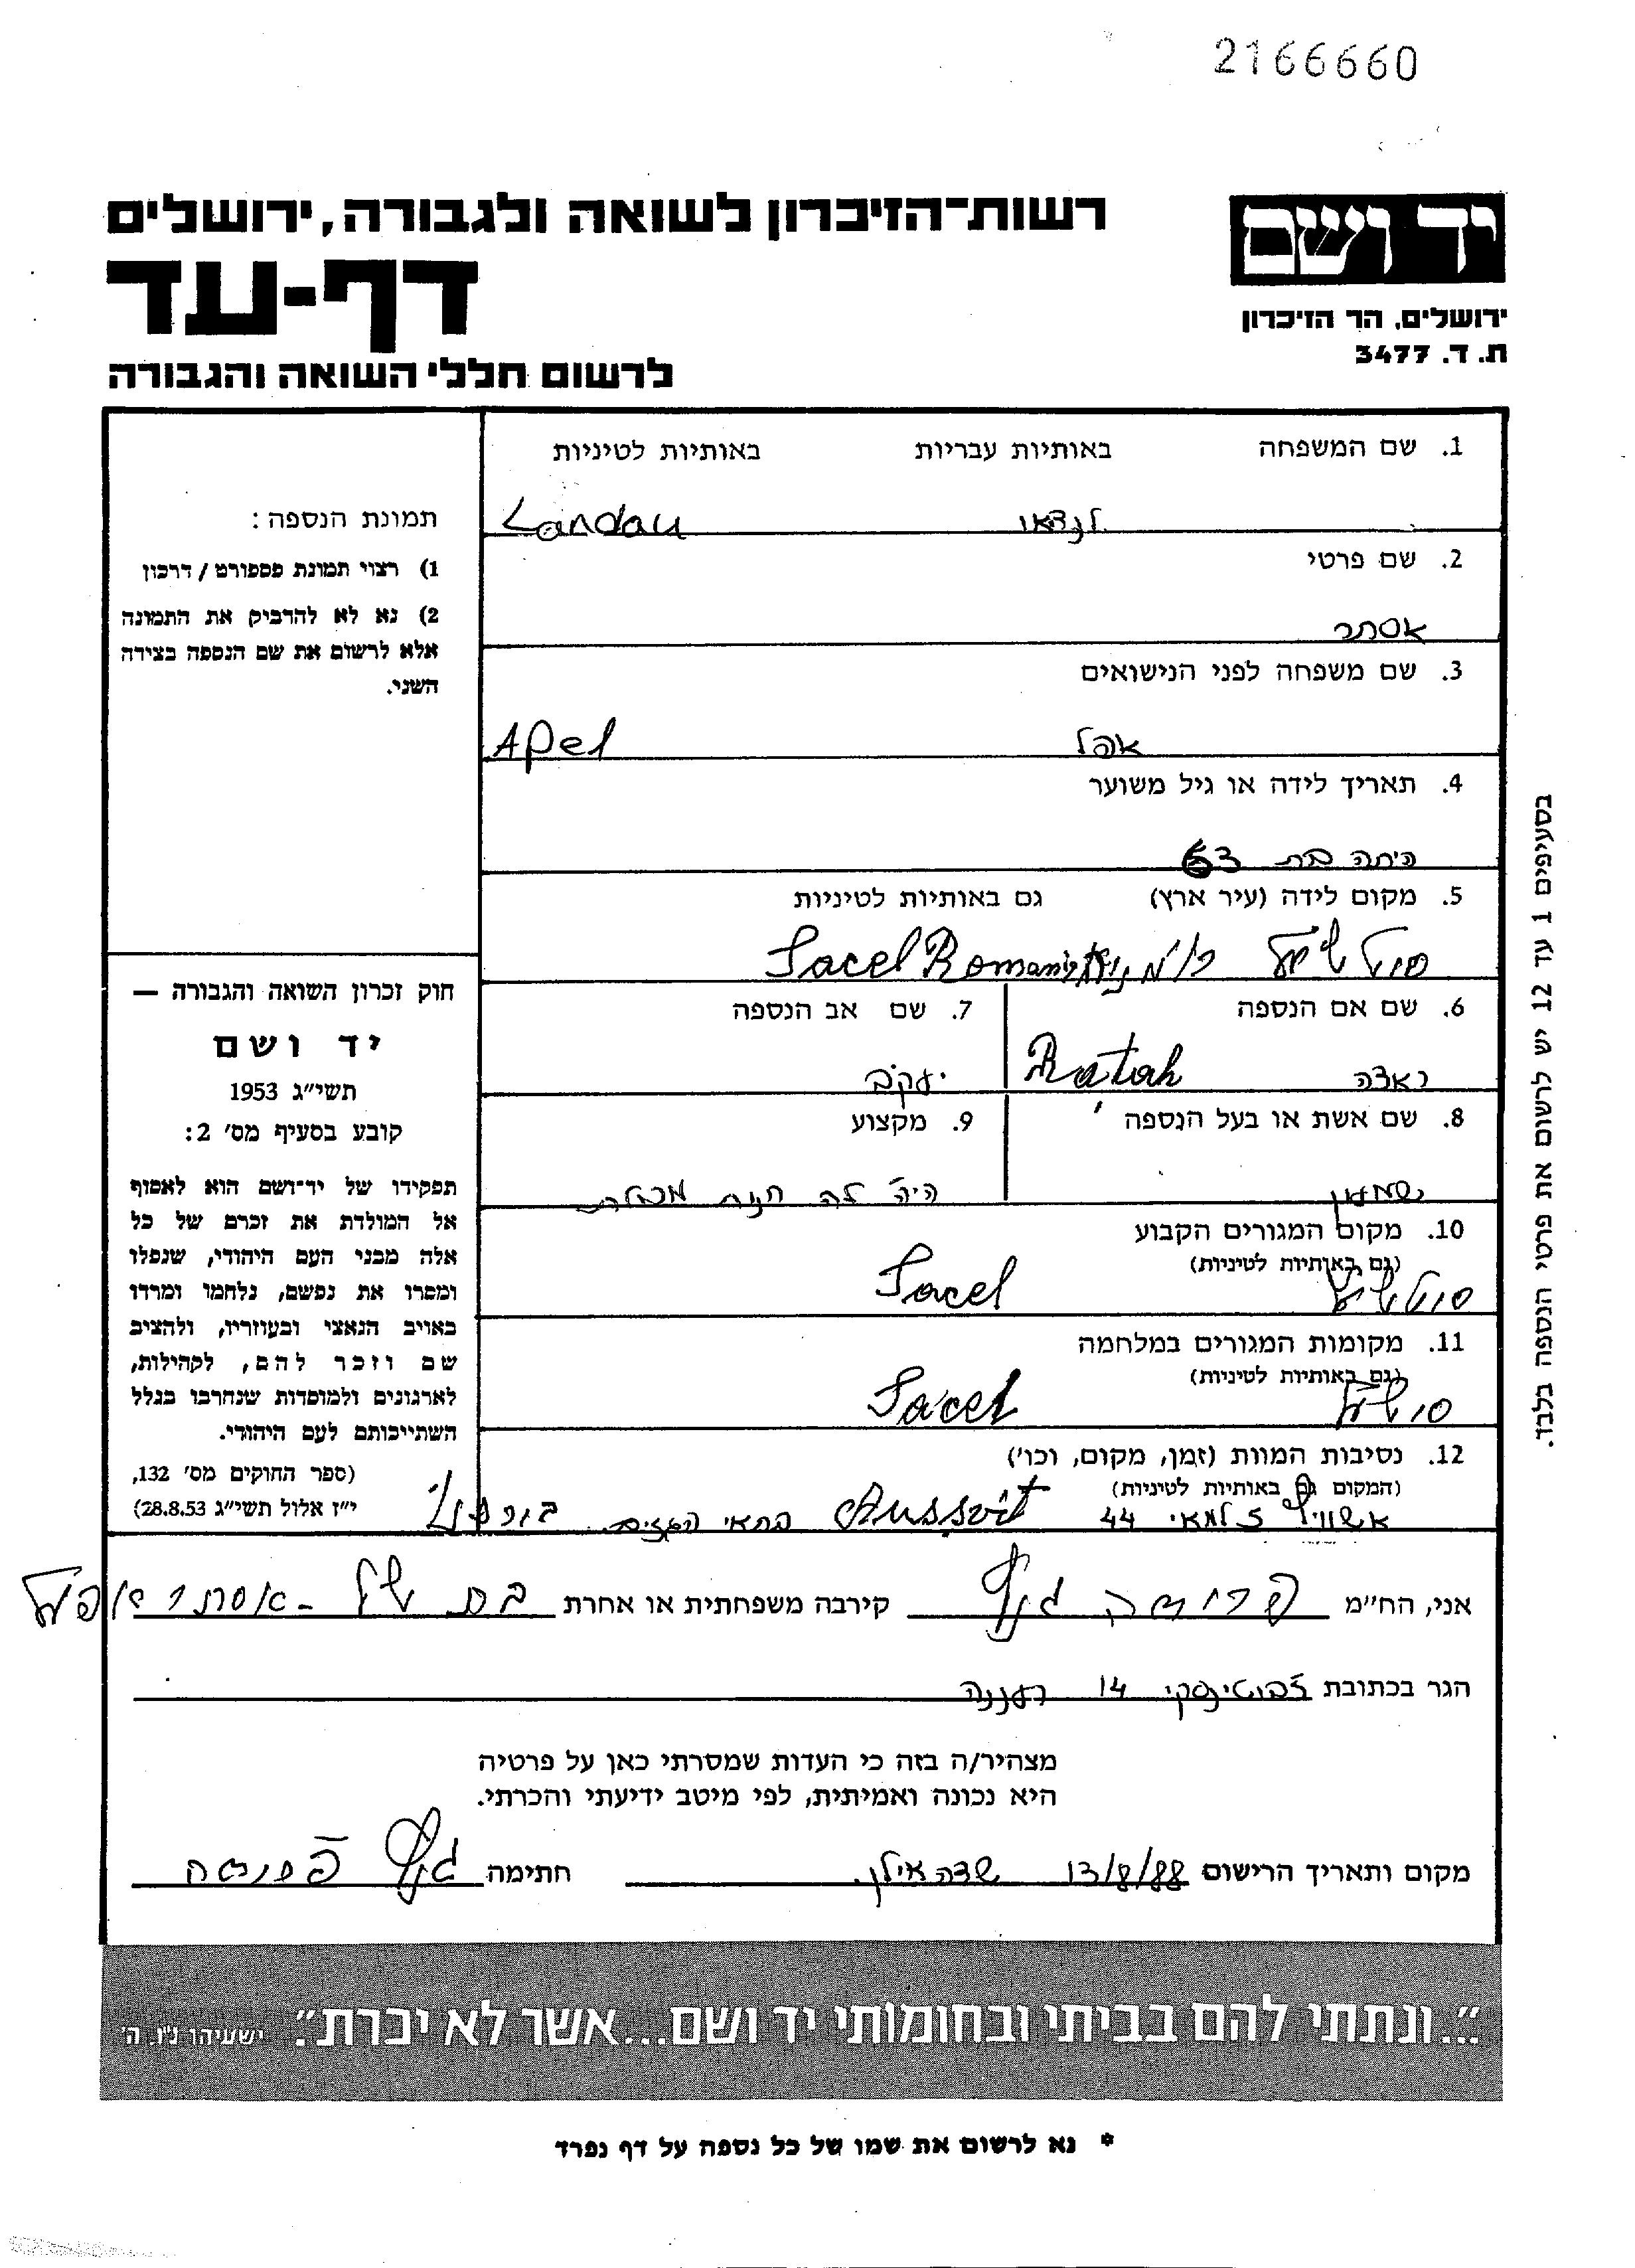 2166660
יד ושם
ירושלים, הר הזיכרון
ת. ד. 3477
רשות־הזיכרון לשואה ולגבורה, ירושלים
דף-עד
לרשום חללי השואה והגבורה
1. שם המשפחה באותיות עבריות באותיות לטיניות
לנדאו Landau
2. שם פרטי
אסתר
3. שם משפחה לפני הנישואים
אפל Apel
4. תאריך לידה או גיל משוער
היתה בת 53
5. מקום לידה (עיר ארץ) גם באותיות לטיניות
Sacel
6. שם אם הנספה
Ratah
7. שם אב הנספה
יעקב
8. שם אשת או בעל הנספה
שמעון
9. מקצוע
היה לה חנות מכולת
10. מקום המגורים הקבוע
(גם באותיות לטיניות)
Sacel
11. מקומות המגורים במלחמה
(גם באותיות לטיניות)
Sacel
12. נסיבות המוות (זמן, מקום, וכו')
(המקום גם באותיות לטיניות)
למאי 44 Aussvit בתאי הגזים
תמונת הנספה:
1) רצוי תמונת פספורט / דרכון
2) נא לא להדביק את התמונה
אלא לרשום את שם הנספה בצידה
השני.
חוק זכרון השואה והגבורה —
יד ושם
תשי״ג 1953
קובע בסעיף מס׳ 2:
תפקידו של יד־ושם הוא לאסוף
אל המולדת את זכרם של כל
אלה מבני העם היהודי, שנפלו
ומסרו את נפשם, נלחמו ומרדו
באויב הנאצי ובעוזריו, ולהציב
שם וזכר להם, לקהילות,
לארגונים ולמוסדות שנחרבו בגלל
השתייכותם לעם היהודי.
(ספר החוקים מס׳ 132,
י״ז אלול תשי״ג 28.8.53)
בסעיפים 1 עד 12 יש לרשום את פרטי הנספה בלבד.
אני, הח״מ גנץ קירבה משפחתית או אחרת בת של - אסתר אפל
הגר בכתובת זבוטינסקי 14 רעננה
מצהיר/ה בזה כי העדות שמסרתי כאן על פרטיה
היא נכונה ואמיתית, לפי מיטב ידיעתי והכרתי.
מקום ותאריך הרישום 13/8/88 שדה אילן חתימה גנץ
״...ונתתי להם בביתי ובחומותי יד ושם...אשר לא יכרת״. ישעיהו נ״ו, ה׳
* נא לרשום את שמו של כל נספה על דף נפרד